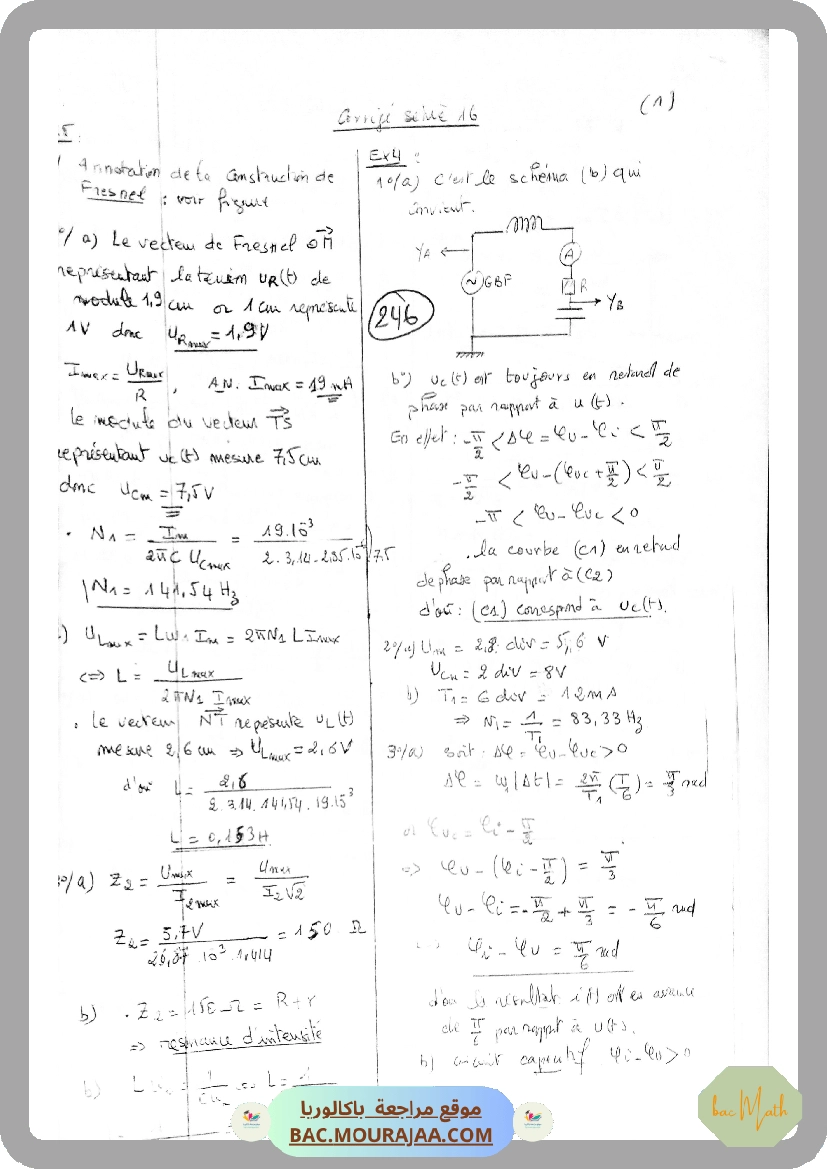 (1)
Corrigé série 16
Annotation de la Construction de
Fresnel : voir figure
a) Le vecteur de Fresnel OM
représentant la tension uR(t) de
module 1,9 cm or 1 cm représente
1V donc URmax = 1,9V
Imax = URmax/R , A.N. Imax = 19 mA
le module du vecteur TS
représentant uc(t) mesure 7,5 cm
donc UCm = 7,5 V
. N1 = Im/(2πC UCmax) =
N1 = 141,54 Hz
ULmax = Lω1 Im = 2πN1 L Imax
<=> L = ULmax/(2πN1 Imax)
. Le vecteur NT représente uL(t)
mesure 2,6 cm => ULmax = 2,6V
d'où L = 2,6/(2.3,14.141,54.19.10³)
L = 0,153 H
a) Z2 = Umax/I2max = Umax/(I2√2)
Z2 = 5,7V/(26,87.10³.1,414) = 150 Ω
b) . Z2 = 150 Ω = R+r
=> résonance d'intensité
b)
Ex4 :
1°/a) C'est le schéma (b) qui
convient.
YA
A
GBF
R
YB
246
b°) uc(t) est toujours en retard de
phase par rapport à u(t).
En effet : -π/2 < Δφ = φu - φi < π/2
-π/2 < φu - (φuc + π/2) < π/2
-π < φu - φuc < 0
. la courbe (C1) en retard
de phase par rapport à (C2)
d'où : (C1) correspond à uc(t).
2°/a) Um = 2,8 div = 5,6 V
UCm = 2 div = 8V
b) T1 = 6 div = 12ms
=> N1 = 1/T1 = 83,33 Hz
3°/a) soit : Δφ = φu - φuc > 0
Δφ = ω1|Δt| = 2π/T1 (T/6) = π/3 rad
or φuc = φi - π/2
=> φu - (φi - π/2) = π/3
φu - φi = -π/2 + π/3 = -π/6 rad
φi - φu = π/6 rad
d'où le résultat i(t) est en avance
de π/6 par rapport à u(t).
b) circuit capacitif φi - φu > 0
موقع مراجعة باكالوريا
BAC.MOURAJAA.COM
bac Math